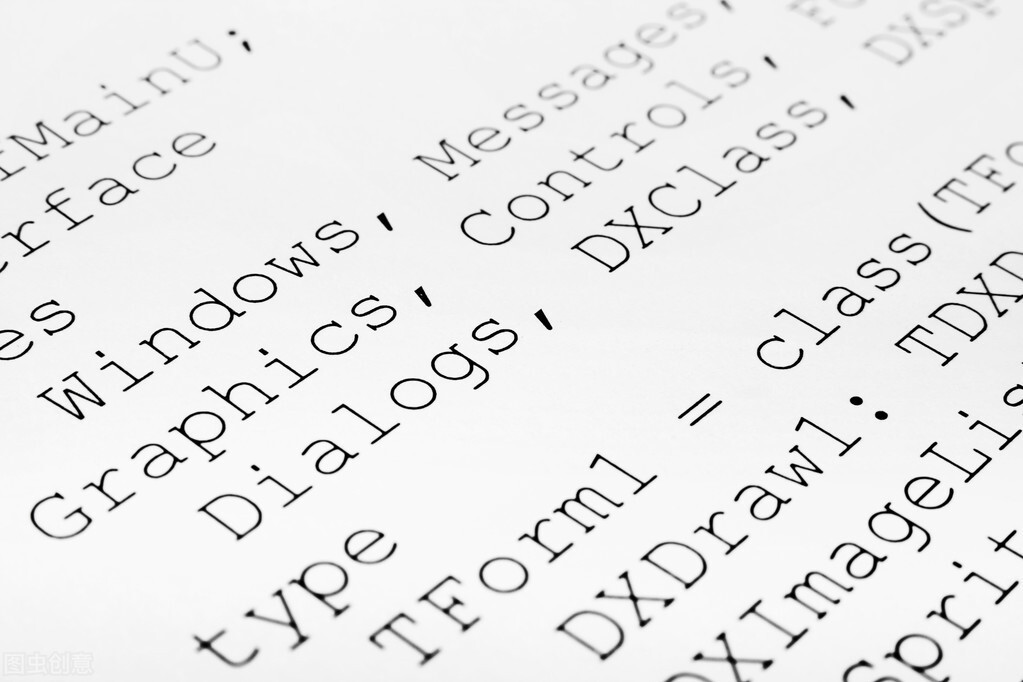 MainU;
erface
es
Windows, Messages,
Graphics, Controls,
Dialogs, DXClass,
type
TForm1 = class(TFo
DXDraw1: TDXD
DXImageLis
Sprit
图虫创意